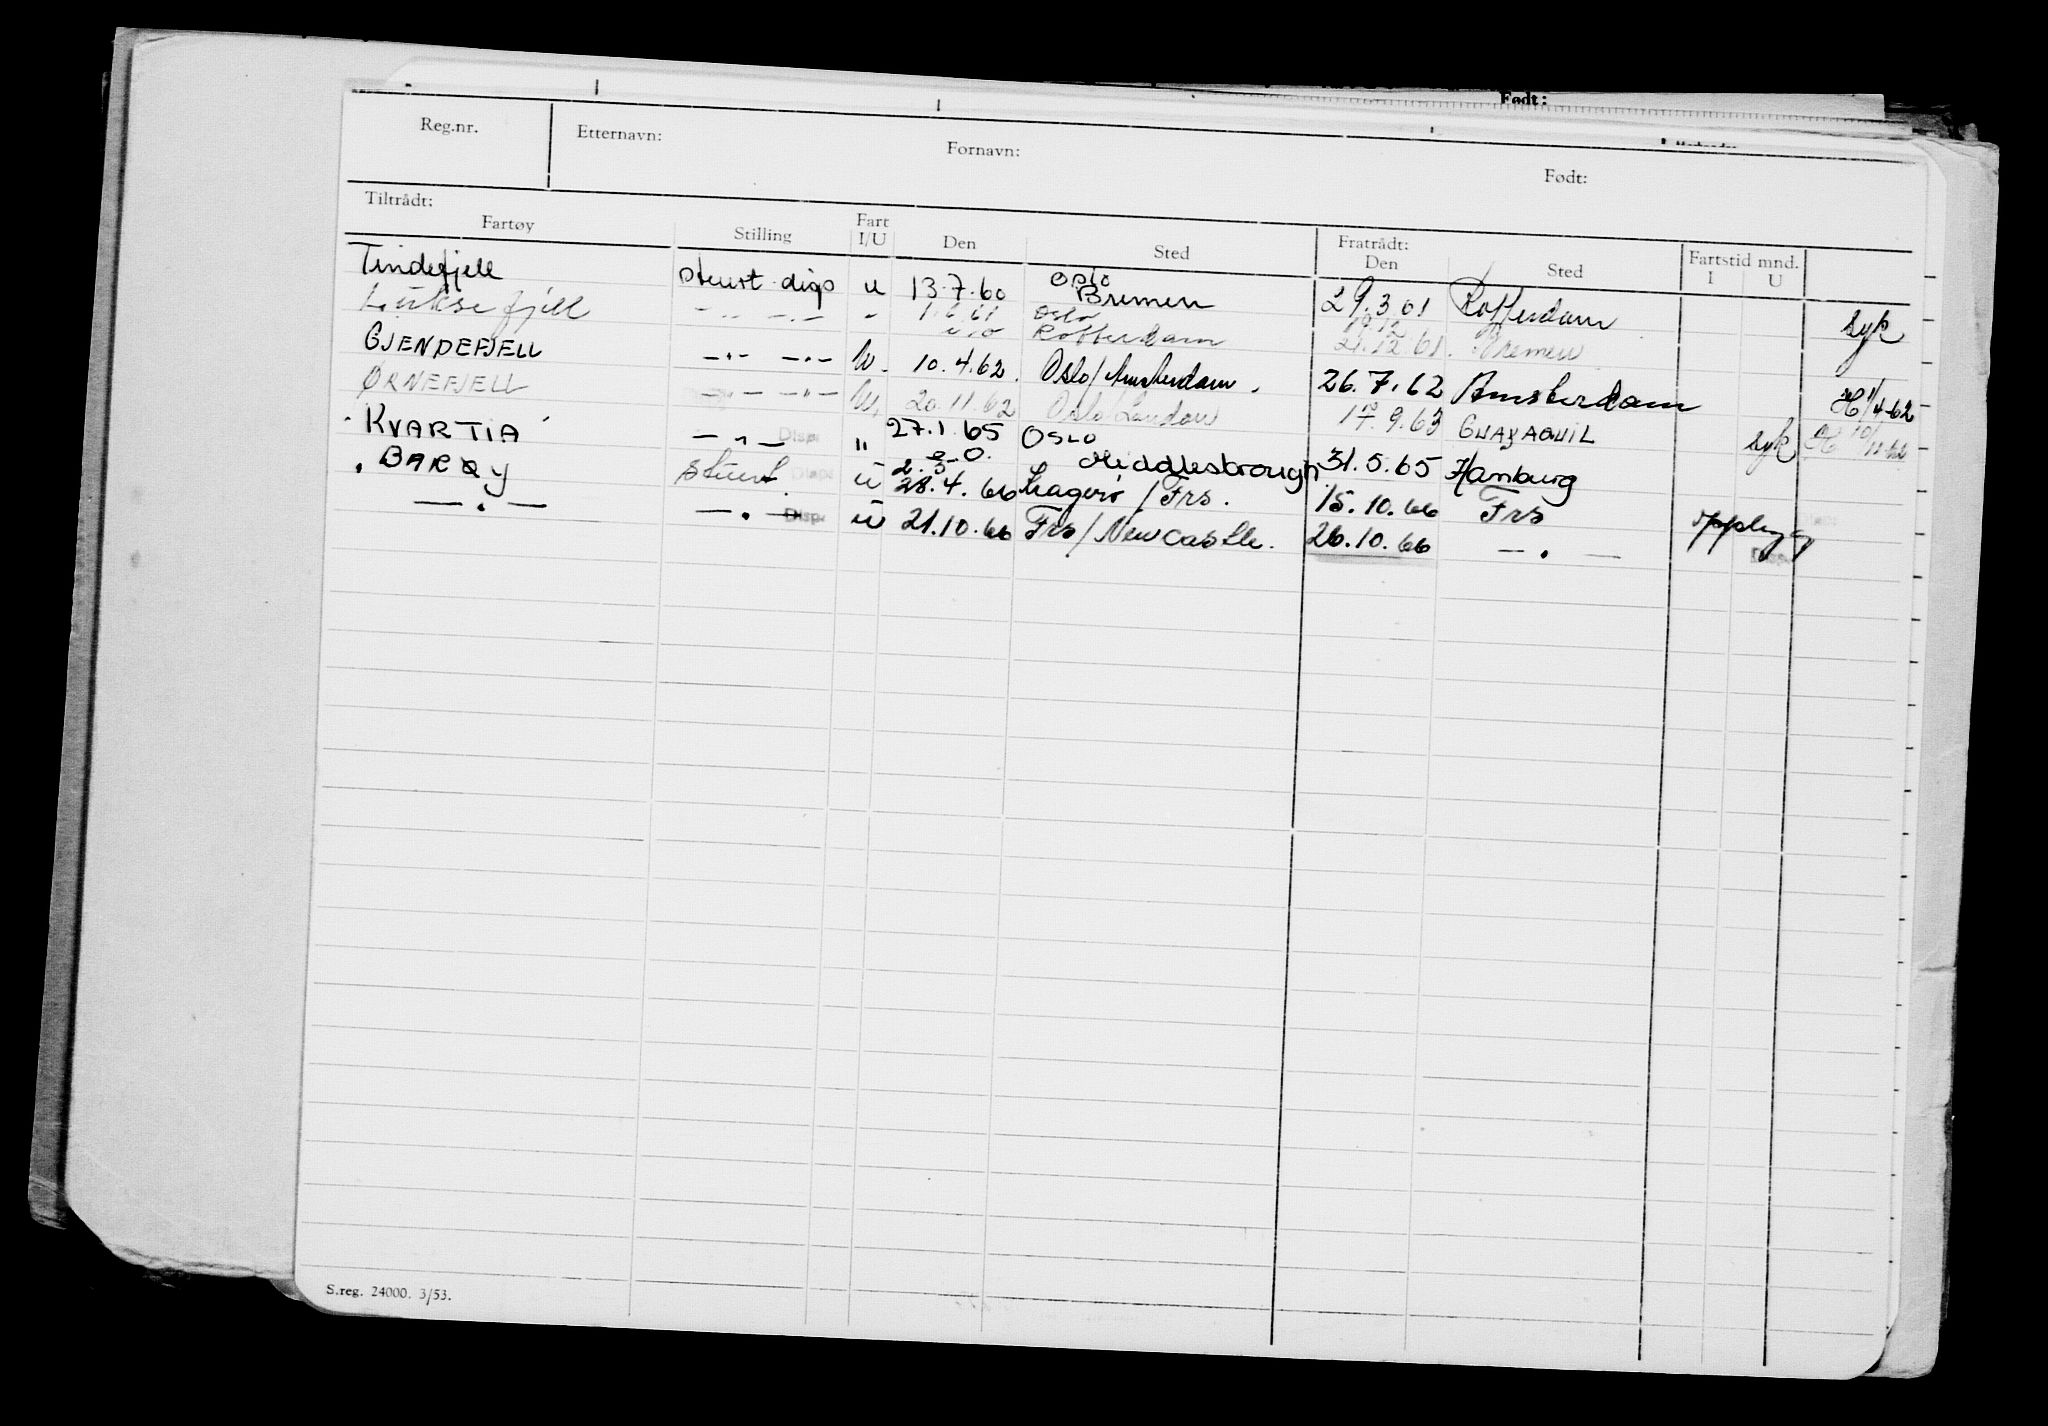 Født:
Reg.nr. Etternavn: Fornavn: Født:
Tiltrådt: Fratrådt:
Fartøy Stilling Fart I/U Den Sted Den Sted Fartstid mnd. I U
Tindefjell stuert disp u 13.7.60 Oslo Bremen 29.3.61 Rotterdam syk
fjell — " — — " — " 1.6.61 Oslo Rotterdam 19.12 21.12.61. Bremen
GJENDEFJELL — " — — " — U. 10.4.62. Oslo/Amsterdam. 26.7.62 Amsterdam H 1/4-62
ØRNEFJELL — " — — " — U. 20.11.62 Oslo London 17.9.63 GUAYAQUIL syk H 10/11-62
KVARTIA — " — Disp. " 27.1.65 OSLO Middlesbrough 31.5.65 Hamburg
BARØY stuert. Disp. u 28.4.66 / Frs. 15.10.66 Frs
— " — — " — Disp. u 21.10.66 Frs/Newcastle. 26.10.66 — " — opplag
S.reg. 24000. 3/53.